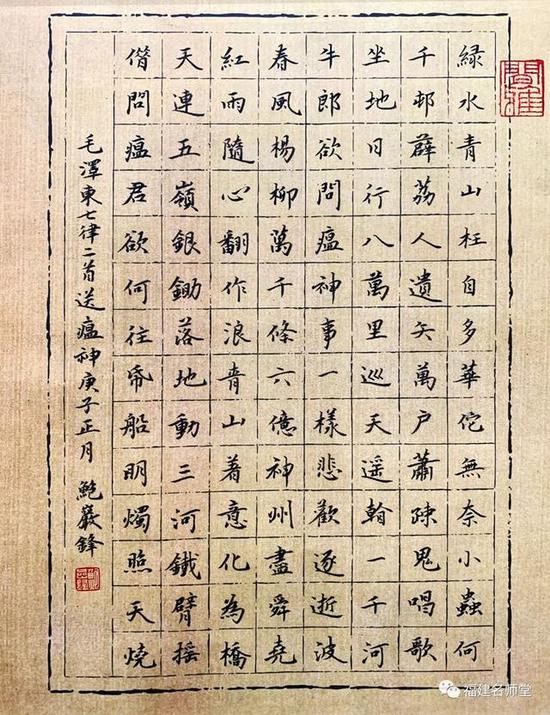 緑水青山枉自多華佗無奈小蟲何
千邨薜荔人遺矢萬户蕭疎鬼唱歌
坐地日行八萬里巡天遥翰一千河
牛郎欲問瘟神事一樣悲歡逐逝波
春風楊柳萬千條六億神州盡舜堯
紅雨隨心翻作浪青山著意化為橋
天連五嶺銀鋤落地動三河鐵臂摇
借問瘟君欲何往帋船明燭照天燒
毛澤東七律二首送瘟神庚子正月 鮑巖鋒
福建名师堂